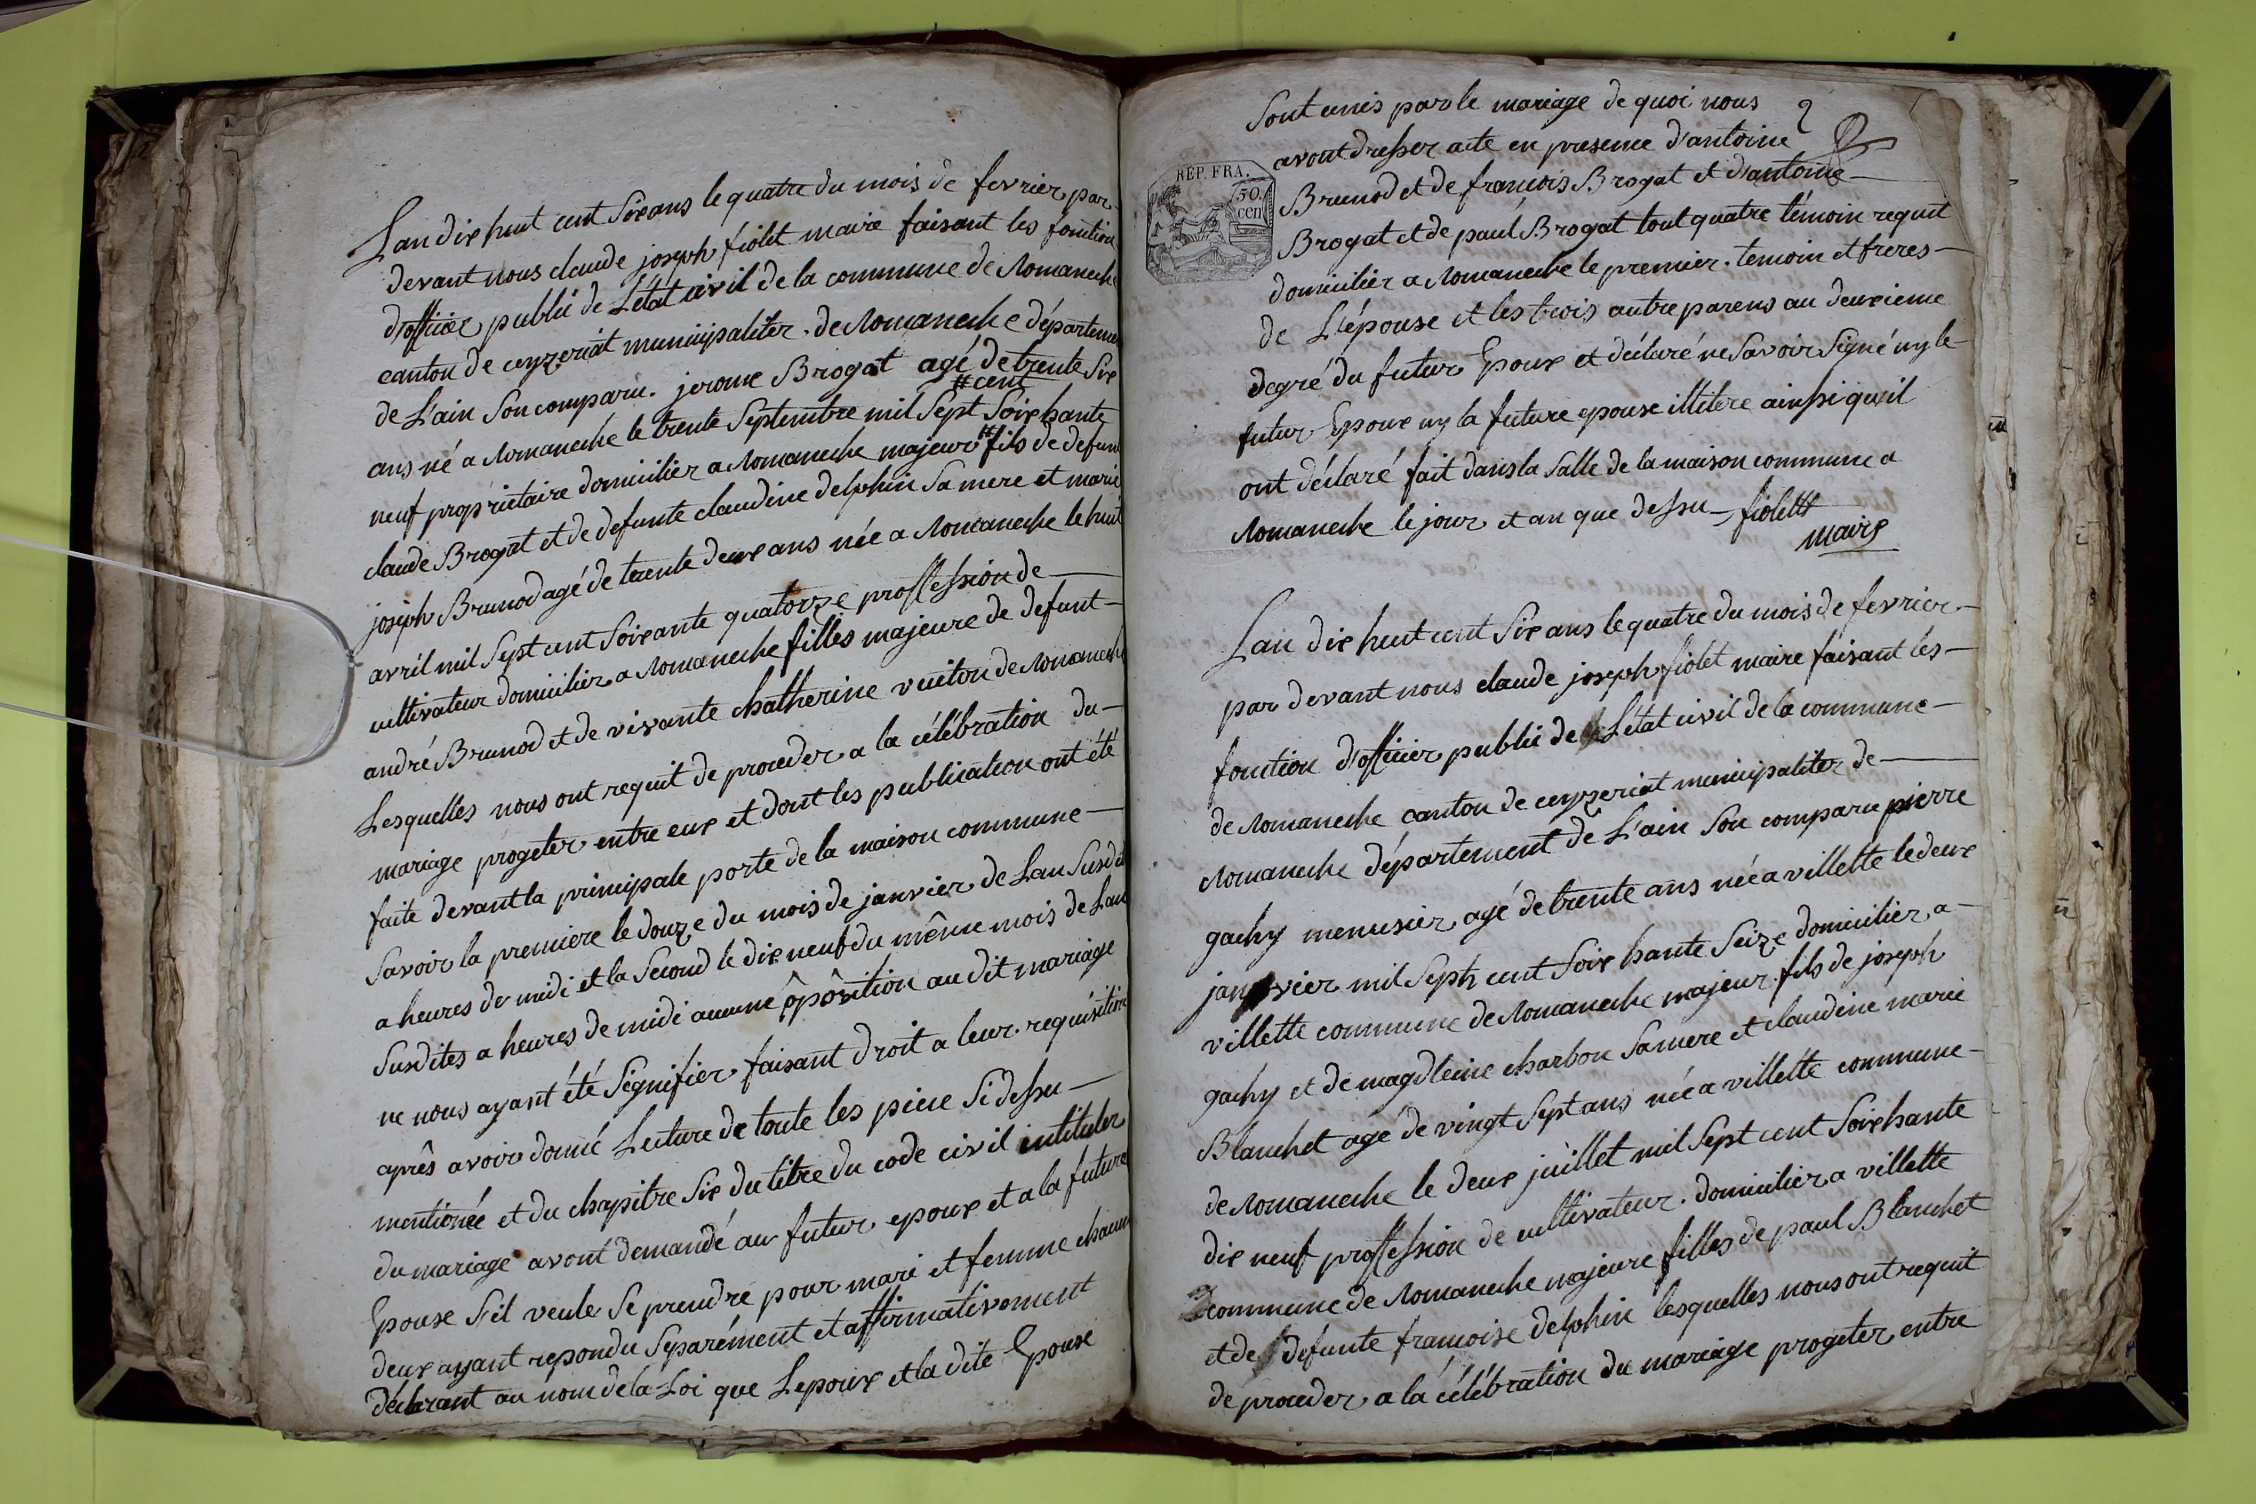 Lan dix huit cent Six ans le quatre du mois de fevrier par
devant nous claude joseph fiolet maire faisant les fontion
d'officier publii de L'état civil de la commune de Romaneche
canton de ceyzeriat municipaliter de Romaneche départeme
de L'ain Son comparu jerome Brogat agé de trente Six
ans né a Romaneche le trente Septembre mil Sept # cent Soixhante
neuf propriétaire domicilier a Romaneche majeur # fils de defun
claude Brogat et de defunte claudine delphin Sa mere et marie
joseph Brunod agé de trente deux ans née a Romaneche le huit
avril mil Sept cent Soixante quatorze proffession de
cultivateur domicilier a Romaneche filles majeure de defunt
andré Brunod et de vivante chatherine vuiton de Romaneche
Lesquelles nous ont requit de proceder a la célébration du
mariage progeter entre eux et dont les publication ont été
faite devant la principale porte de la maison commune
Savoir la premiere le douze du mois de janvier de Lan Susdit
a heures de midi et la Second le dix neuf du même mois de Lan
Susdites a heures de midi aucune ôpôsition au dit mariage
ne nous ayant été Signifier faisant droit a leur requisition
aprês avoir donné Lecture de toute les piece Si dessu
mentionée et du chapitre Six du titre du code civil intituler
du mariage avont demandé au futur epoux et a la future
Epouse S'il veule Se prendre pour mari et femme chacun
deux ayant repondu Separément et affirmativement
déclarant au nom de la Loi que Lepoux et la dite Epouse
Sont unis par le mariage de quoi nous
avont dresser acte en presence d'antoine
Brunod et de francois Brogat et d'antoine
Brogat et de paul Brogat tout quatre témoin requit
domicilier a Romaneche le premier temoin et freres
de L'épouse et les trois autre parens au deuxieme
degré du futur Epoux et déclaré ne Savoir Signé ny le
futur Epoux ny la future epouse illitere ainssi quil
ont déclaré fait dans la Salle de la maison commune a
Romaneche le jour et an que dessu fiolet
maire
RÉP. FRA.
50.
cen
Lan dix huit cent Six ans le quatre du mois de fevrier
par devant nous claude joseph fiolet maire faisant les
fontion d'officier publii de L'état civil de la commune
de Romaneche canton de ceyzeriat municipaliter de
Romaneche département de L'ain Son comparu pierre
gachy menusier agé de trente ans née a villette le deux
janvier mil Seph cent Soixhante Seize domicilier a
villette commune de Romaneche majeur fils de joseph
gachy et de magdleine charbon Samere et claudine marie
Blanchet agé de vingt Sept ans née a villette commune
de Romaneche le deux juillet mil Sept cent Soixhante
dix neuf proffession de cultivateur domicilier a villette
commune de Romaneche majeure filles de paul Blanchet
et de defunte francoise delphin lesquelles nous ont requit
de proceder a la célébration du mariage progeter entre